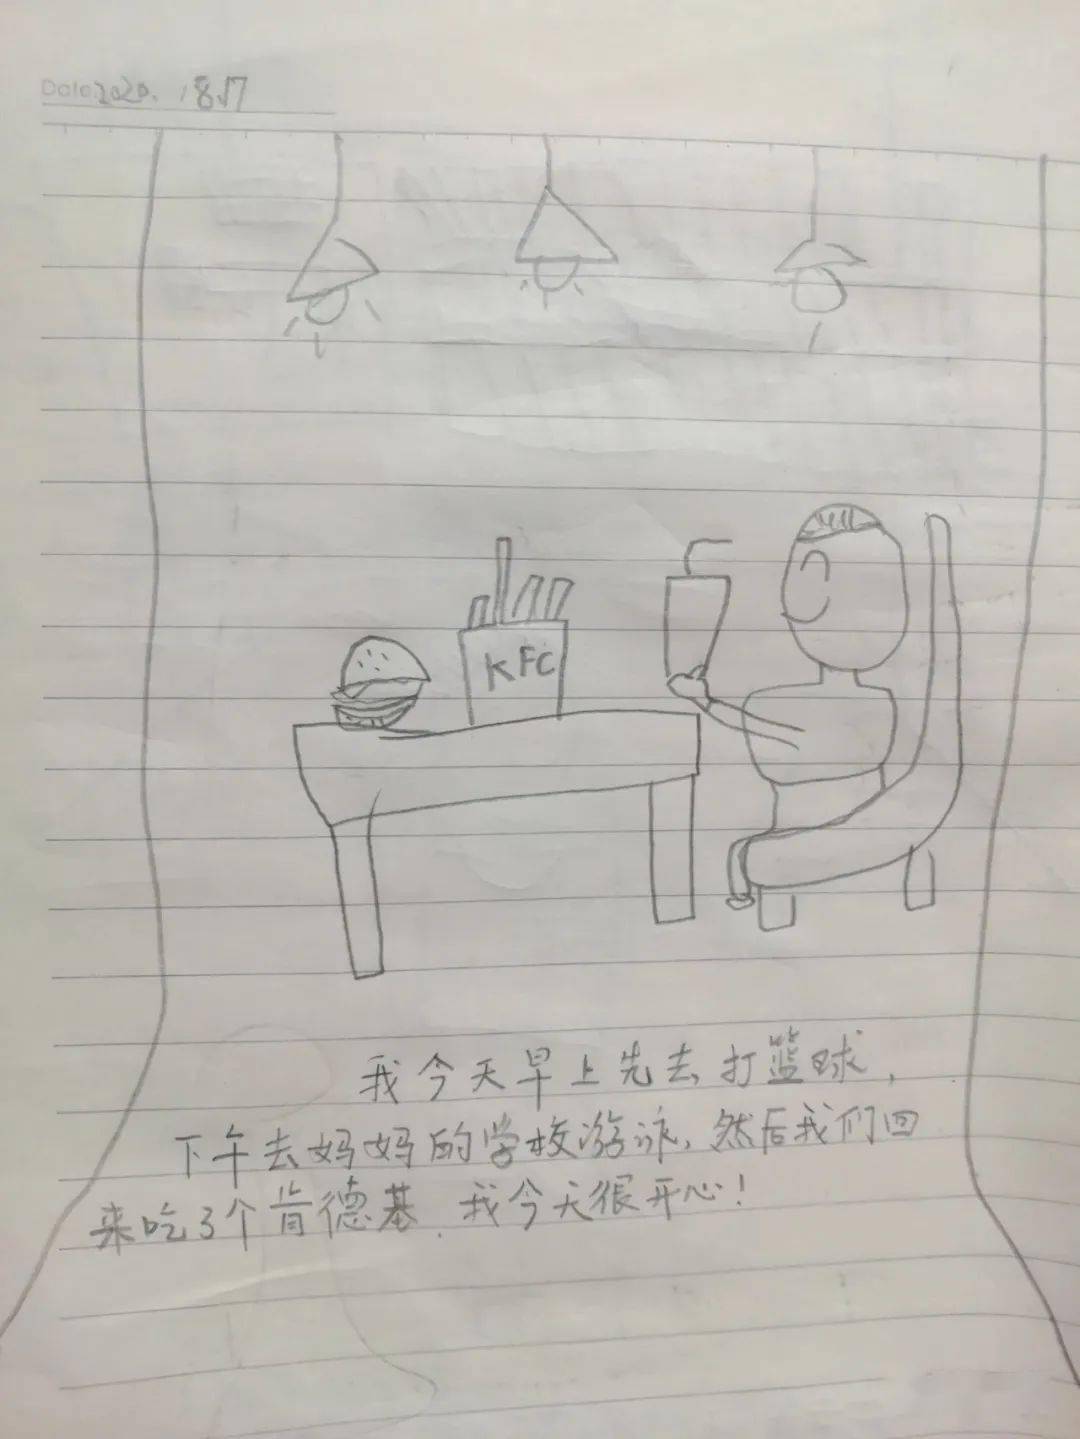 Date 2020. 8.17
KFC
我今天早上先去打篮球,
下午去妈妈的学校游泳,然后我们回
来吃了个肯德基.我今天很开心!